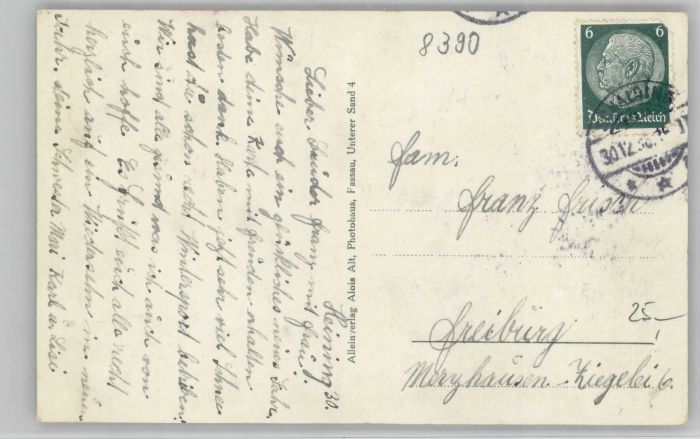 8390
6
Deutsches Reich
30.12.
Haining 30.
Lieber Bruder Franz mit Frau!
Wünsche euch ein glückliches neues Jahr.
Habe deine Karte mit Freuden erhalten
besten dank. Haben jetzt sehr viel Schnee
hast du schon recht Wintersport betrieben.
Wir sind alle gesund was ich auch von
euch hoffe. Es grüßt euch alle recht
herzlich auf ein Wiedersehn im neuen
Jahr. deine Schwester Mari Karl u. Lisi
Alleinverlag Alois Alt, Photohaus, Passau, Unterer Sand 4
Fam.
Franz Frisch
Freiburg
Merzhausen - Ziegelei 6.
25,-